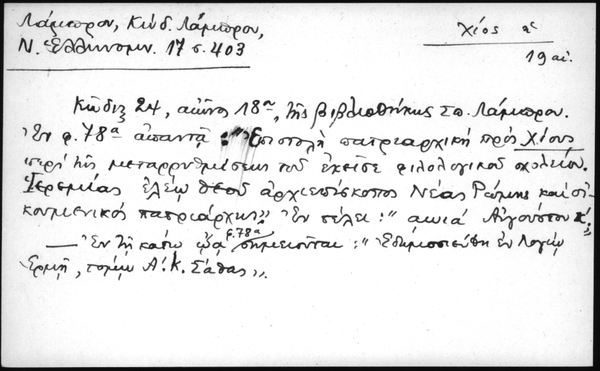 Λάμπρου, Κώδ. Λάμπρου,
Ν. Ἑλληνομν. 17 σ. 403
Χίος
19 αἰ.
Κῶδιξ 24, αἰῶνος 18ου, τῆς βιβλιοθήκης Σπ. Λάμπρου.
Ἐν φ. 78α ἀπαντᾷ: "Ἐπιστολὴ πατριαρχικὴ πρὸς Χίους
περὶ τῆς μεταρρυθμίσεως τοῦ ἐκεῖσε φιλολογικοῦ σχολείου.
Ἱερεμίας ἐλέῳ θεοῦ ἀρχιεπίσκοπος Νέας Ρώμης καὶ οἰ-
κουμενικὸς πατριάρχης" Ἐν τέλει: "αωιά Αὐγούστου
— Ἐν τῇ κάτω ᾤᾳ φ. 78α σημειοῦται: "Ἐδημοσιεύθη ἐν Λογίῳ
Ἑρμῇ, τομῳ Α'. Κ. Σάθας".